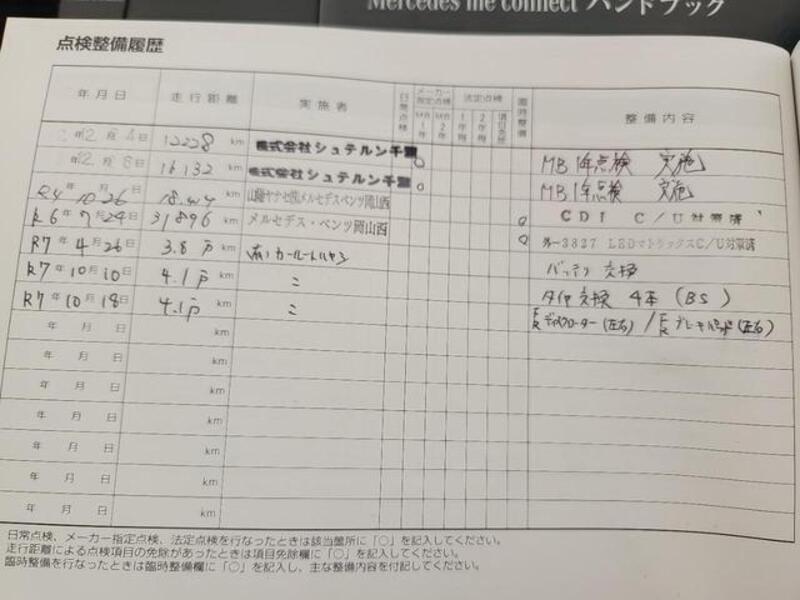 Mercedes me connect ハンドブック
点検整備履歴
年月日 走行距離 実施者 日常点検 メーカー指定点検 法定点検 臨時整備 整備内容
MB1年 MB2年 1年毎 2年毎 項目免除
年2月4日 12228 km 株式会社シュテルン千葉 ○ MB1年点検 実施
年12月8日 16132 km 株式会社シュテルン千葉 ○ MB1年点検 実施
R4年10月26日 km 山陽ヤナセ㈱メルセデスベンツ岡山西 ○ CDI C/U対策済
R6年7月24日 31896 km メルセデス・ベンツ岡山西 ○ 外-3827 LEDマトリックスC/U対策済
R7年4月26日 3.8万 km (有)カールートハヤシ バッテリ交換
R7年10月10日 4.1万 km 〃 タイヤ交換 4本 (BS)
R7年10月18日 4.1万 km 〃 F R ディスクローター(左右) / F R ブレーキパッド(左右)
年 月 日 km
年 月 日 km
年 月 日 km
年 月 日 km
年 月 日 km
年 月 日 km
年 月 日 km
日常点検、メーカー指定点検、法定点検を行なったときは該当箇所に「○」を記入してください。
走行距離による点検項目の免除があったときは項目免除欄に「○」を記入してください。
臨時整備を行なったときは臨時整備欄に「○」を記入し、主な整備内容を付記してください。